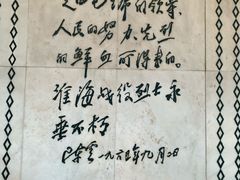 是由毛主席的领导、
人民的努力、先烈
的鲜血所得来的。
淮海战役烈士永
垂不朽
一九六五年九月二日